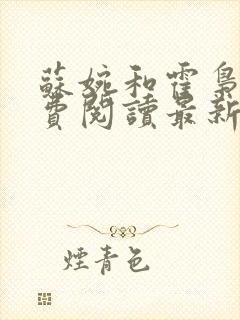 蘇婉和霍梟
費閱讀最新
煙青色